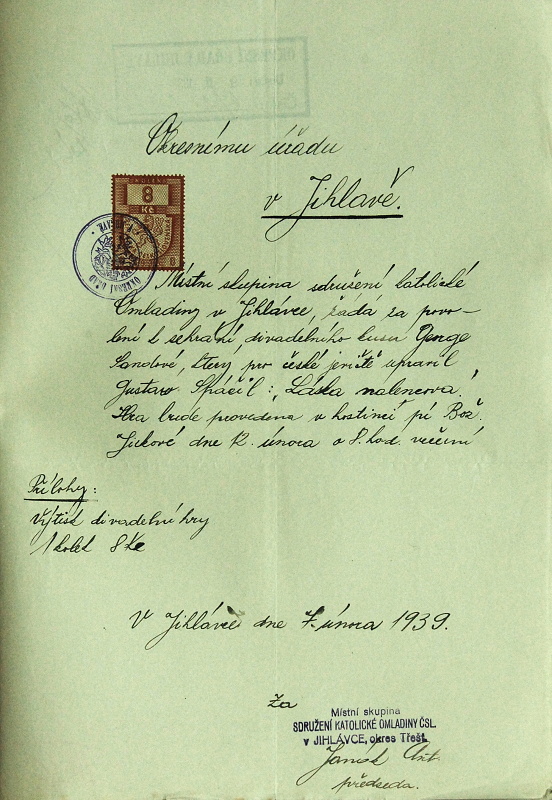 Okresnímu úřadu
v Jihlavě.
KOLEK
8
Kč
8
OKRESNÍ ÚŘAD
Místní skupina sdružení katolické
Omladiny v Jihlávce, žádá za povo-
lení k sehrání, divadelního kusu George
Sandové, který pro české jeviště upravil
Gustav Spáčil: „Láska nalencova."
Hra bude provedena v hostinci pí Bož.
Jickové dne 12. února o 8. hod. večerní
Přílohy:
Výtisk divadelní hry
1 kolek 8 Kč
V Jihlávce dne 7. února 1939.
Za
Místní skupina
SDRUŽENÍ KATOLICKÉ OMLADINY ČSL.
v JIHLÁVCE, okres Třešť.
Janák Ant.
předseda.